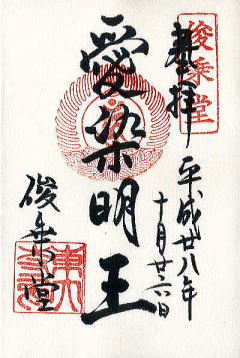 奉拝
俊乗堂
平成廿八年
十月廿六日
愛染明王
俊乗堂